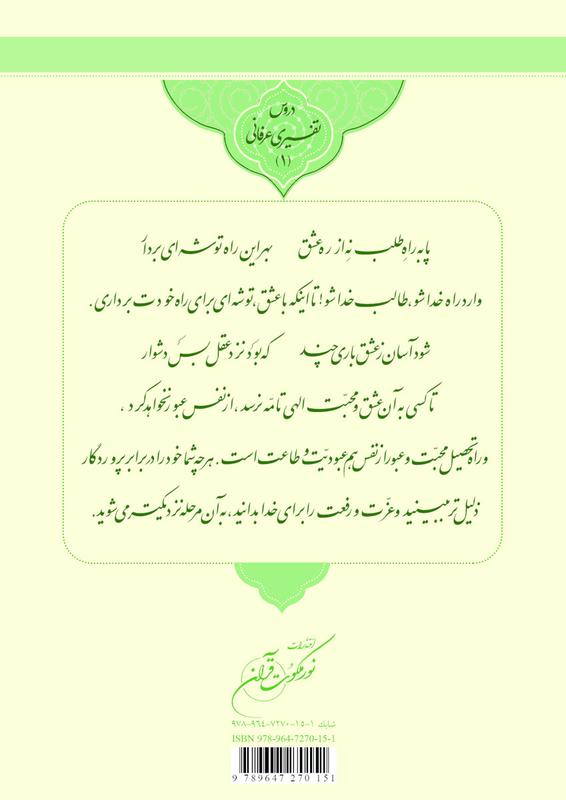 دروس
تفسیری عرفانی
(۱)
پا به راهِ طلب نِه از ره عشق    بهر این راه توشه‌ای بردار
وارد راه خدا شو، طالب خدا شو! تا اینکه با عشق، توشه‌ای برای راه خودت برداری.
شود آسان ز عشق باری چند    که بُوَد نزد عقل بَس دشوار
تا کسی به آن عشق و محبّت الهی تامّه نرسد، از نفس عبور نخواهد کرد،
و راه تحصیل محبّت و عبور از نفس هم عبودیّت و طاعت است. هر چه شما خود را در برابر پروردگار
ذلیل‌تر ببینید و عزّت و رفعت را برای خدا بدانید، به آن مرحله نزدیکتر می‌شوید.
انتشارات
نور ملکوت قرآن
شابک ۱-۱۵-۷۲۷۰-۹۶۴-۹۷۸
ISBN 978-964-7270-15-1
9 789647 270151